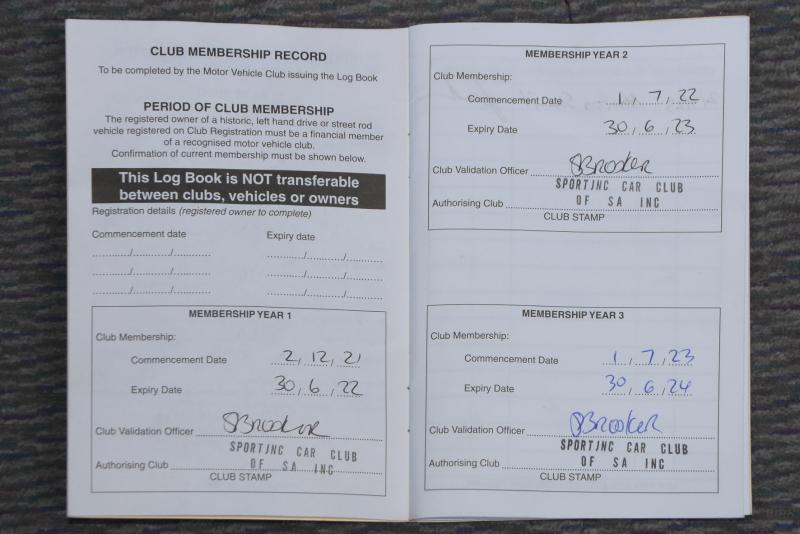 CLUB MEMBERSHIP RECORD
To be completed by the Motor Vehicle Club issuing the Log Book
PERIOD OF CLUB MEMBERSHIP
The registered owner of a historic, left hand drive or street rod
vehicle registered on Club Registration must be a financial member
of a recognised motor vehicle club.
Confirmation of current membership must be shown below.
This Log Book is NOT transferable
between clubs, vehicles or owners
Registration details (registered owner to complete)
Commencement date Expiry date
............/............/............ ............/............/............
............/............/............ ............/............/............
............/............/............ ............/............/............
MEMBERSHIP YEAR 1
Club Membership:
Commencement Date 2/12/21
Expiry Date 30/6/22
Club Validation Officer SBrooker
SPORTING CAR CLUB
Authorising Club OF SA INC
CLUB STAMP
MEMBERSHIP YEAR 2
Club Membership:
Commencement Date 1/7/22
Expiry Date 30/6/23
Club Validation Officer SBrooker
SPORTING CAR CLUB
Authorising Club OF SA INC
CLUB STAMP
MEMBERSHIP YEAR 3
Club Membership:
Commencement Date 1/7/23
Expiry Date 30/6/24
Club Validation Officer SBrooker
SPORTING CAR CLUB
Authorising Club OF SA INC
CLUB STAMP